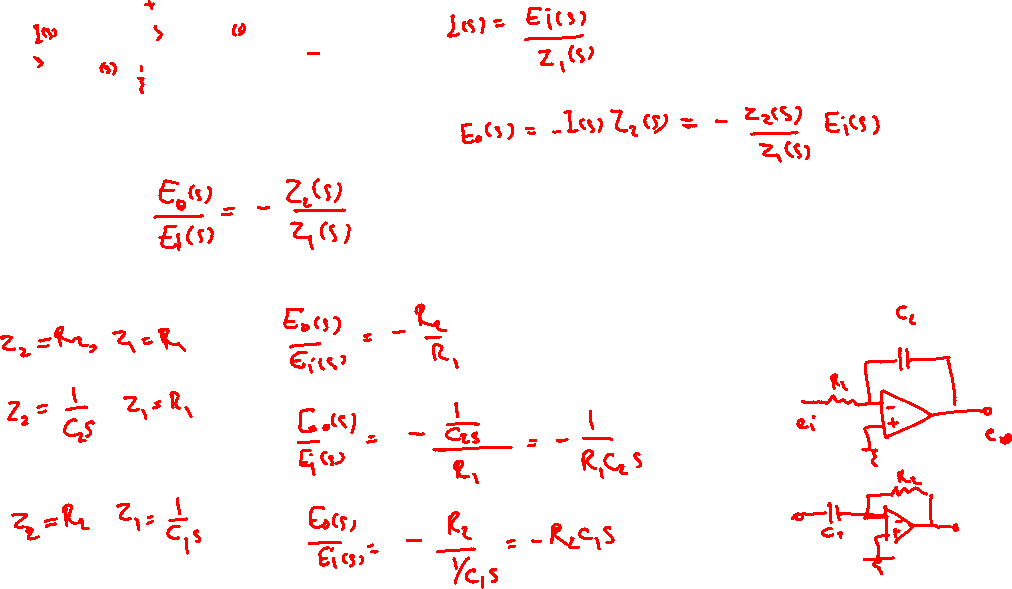 +
I(s) > (s)
I(s) = Ei(s) / Z₁(s)
> (s) -
E₀(s) = -I(s) Z₂(s) = - Z₂(s) / Z₁(s) Ei(s)
E₀(s) / Ei(s) = - Z₂(s) / Z₁(s)
Z₂ = R₂, Z₁ = R₁ E₀(s) / Ei(s) = - R₂ / R₁
Z₂ = 1 / C₂s Z₁ = R₁ E₀(s) / Ei(s) = - (1 / C₂s) / R₁ = - 1 / R₁C₂s
Z₂ = R₂ Z₁ = 1 / C₁s E₀(s) / Ei(s) = - R₂ / (1/C₁s) = -R₂C₁s
C₂
R₁
ei - +
e₀
R₂
C₁ - +